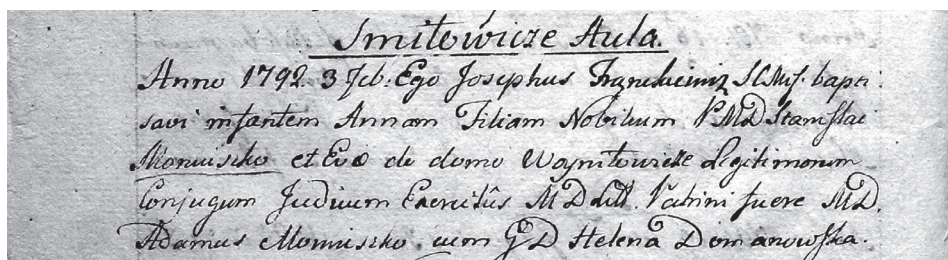 Smiłowicze Aula.
Anno 1792. 3 Feb. Ego Josephus bapti
savi infantem Annam Filiam Nobilium P. M D Stanislai
Moniuszko et Evæ de domo Woyniłowicze Legitimorum
Conjugum Judicum Exercitûs M D Litt. Patrini fuere M D.
Adamus Moniuszko cum G D Helena Domanowska.